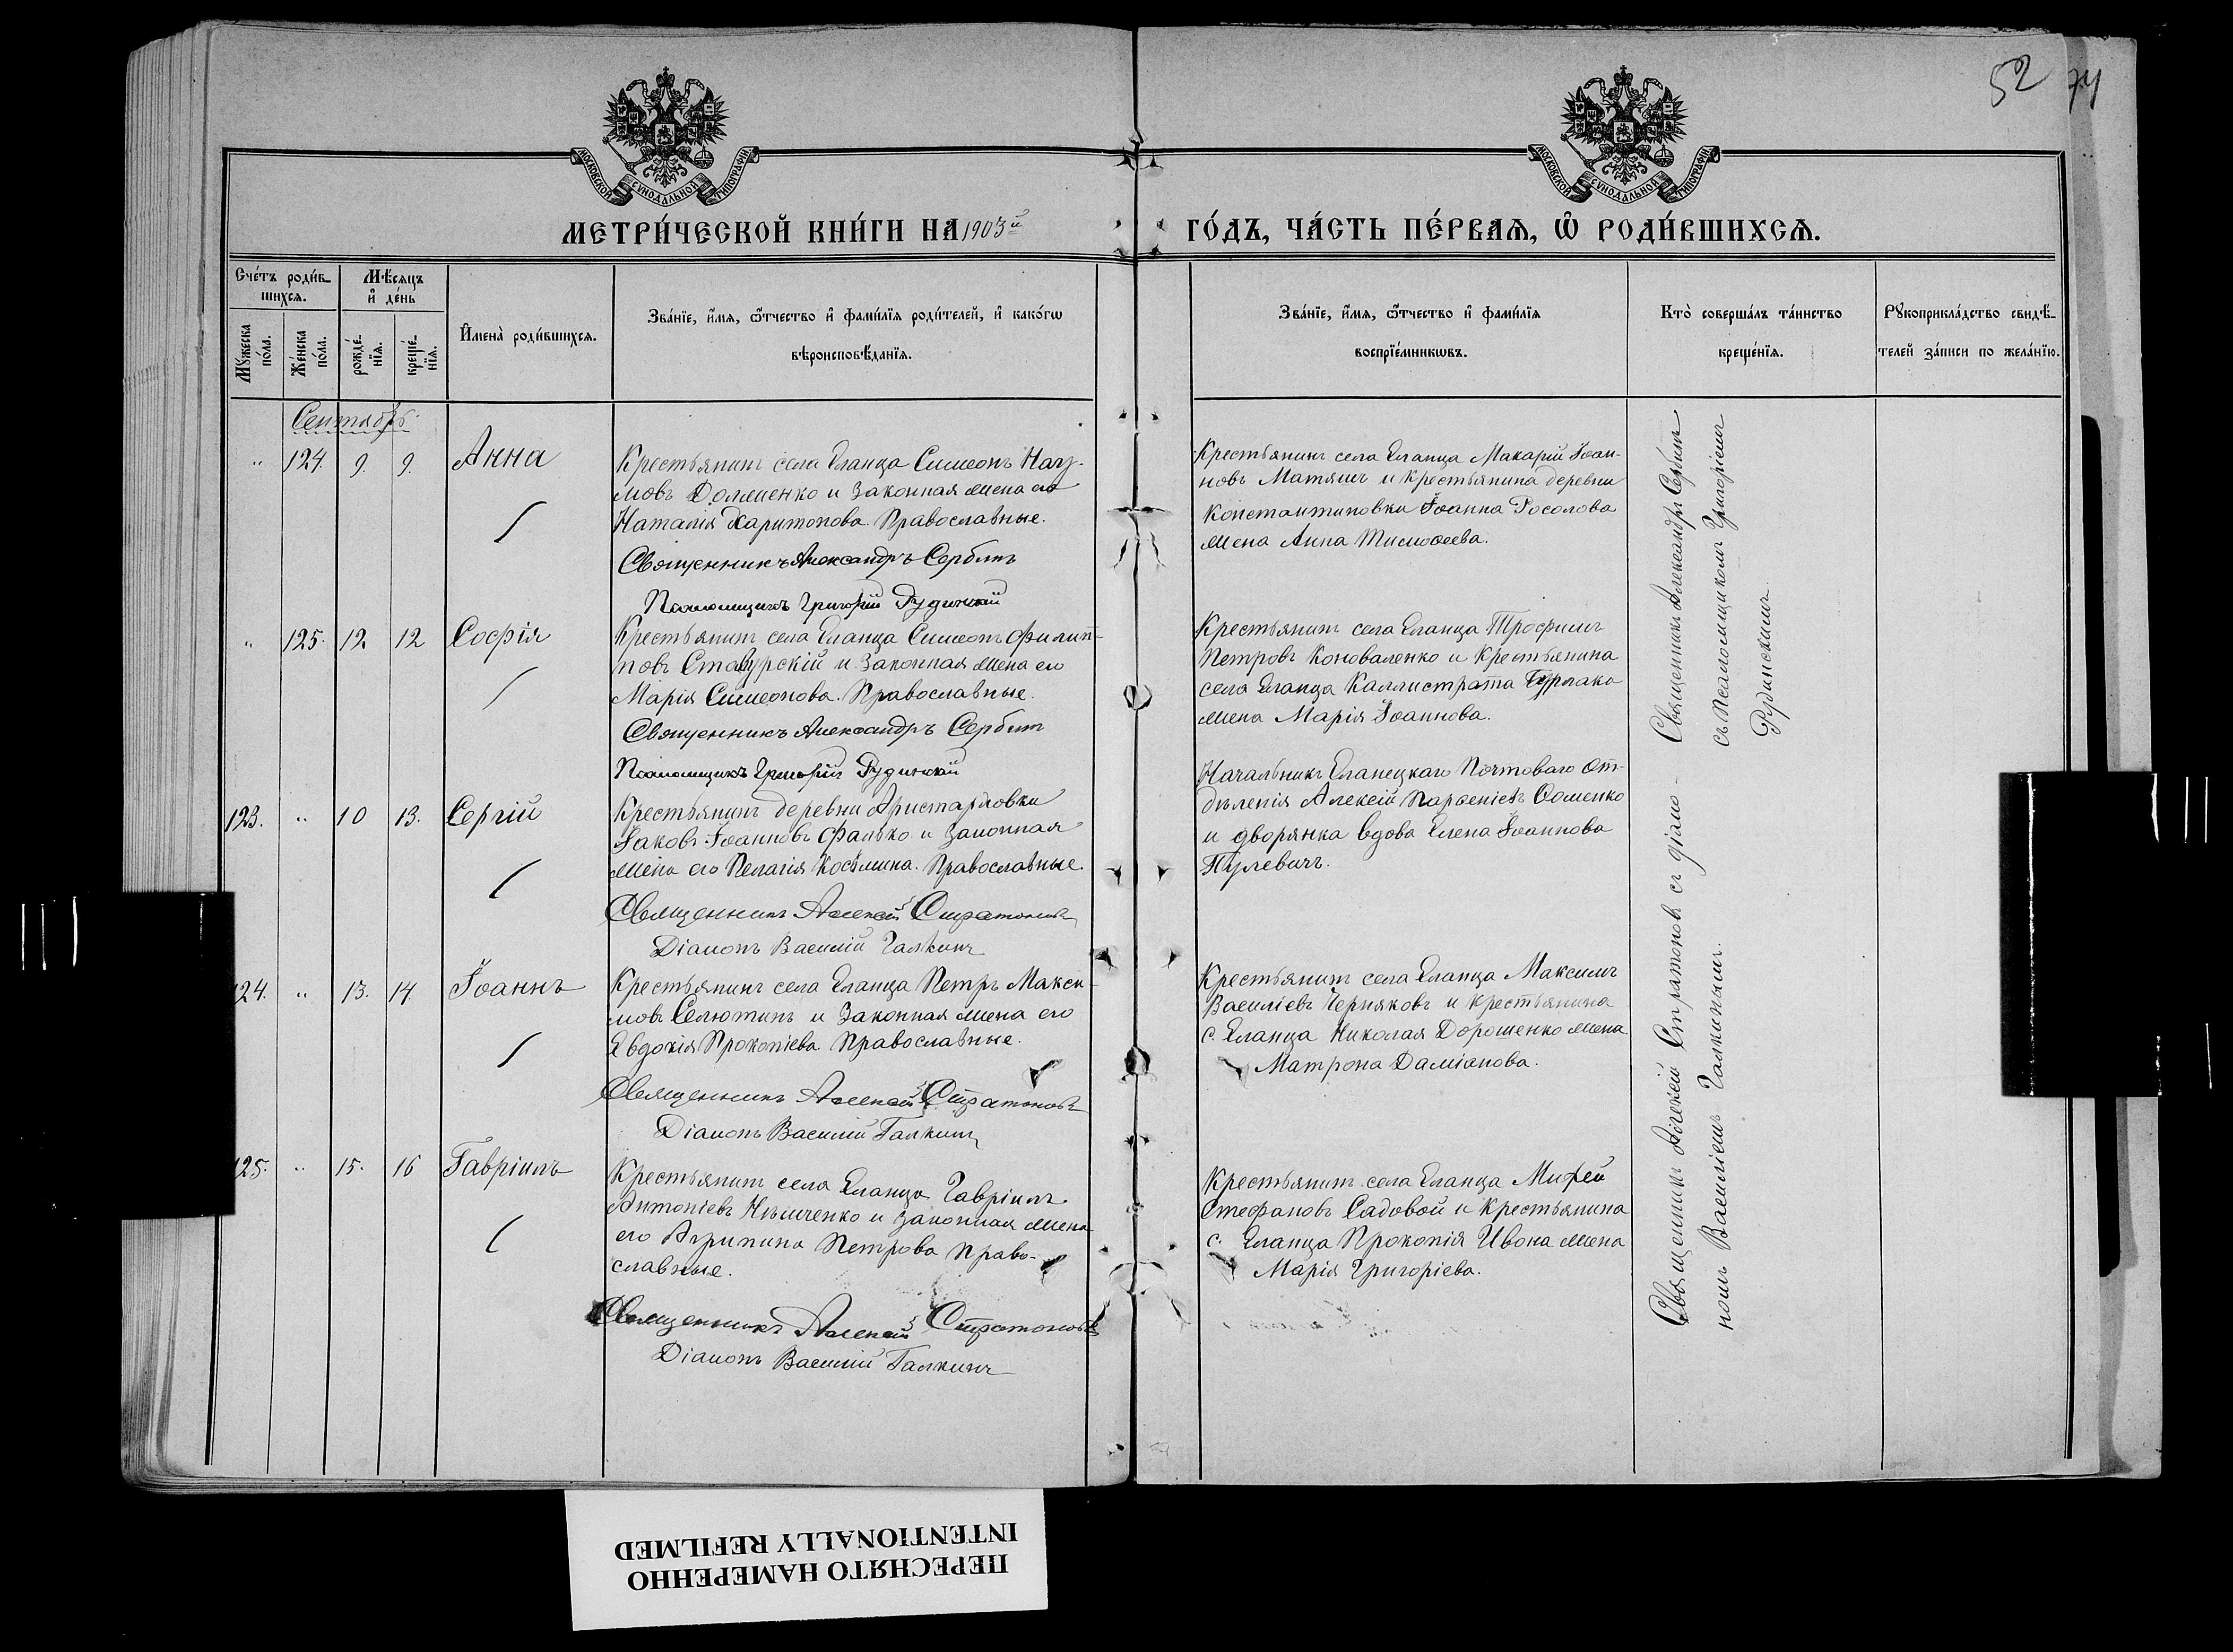 52 74
МОСКОВСКОЙ СѴНОДАЛЬНОЙ ТИПОГРАФІИ
МОСКОВСКОЙ СѴНОДАЛЬНОЙ ТИПОГРАФІИ
МЕТРИ́ЧЕСКОЙ КНИ́ГИ НА 1903й ГО́ДЪ, ЧА́СТЬ ПЕ́РВАѦ, Ѽ РОДИ́ВШИХСѦ.
Сче́тъ роди́в-
шихсѧ.
Мꙋ́жеска по́ла.
Же́нска по́ла.
Мѣ́сѧцъ
и҆ де́нь
рожде́-
нїѧ.
креще́-
нїѧ.
И҆мена̀ роди́вшихсѧ.
Зва́нїе, и҆́мѧ, ѻ҆́тчество и҆ фами́лїѧ роди́телей, и҆ како́гѡ
вѣроисповѣ́данїѧ.
Зва́нїе, и҆́мѧ, ѻ҆́тчество и҆ фами́лїѧ
воспрїе́мникѡвъ.
Кто̀ соверша́лъ та́инство
креще́нїѧ.
Рꙋкоприкла́дство свидѣ́-
телей за́писи по жела́нїю.
Сентябрь
" 124. 9. 9. Анна
Крестьянинъ села Еланца Симеонъ
Долженко и законная жена его
Наталія Харитонова. Православные.
Священникъ Александръ Сербинъ
Псаломщикъ Григорій Рудинскій
Крестьянинъ села Еланца Макарій Іоан-
новъ Матяшъ и крестьянина деревни
Константиновки Іоанна Росолова
жена Анна Тимоѳеева.
" 125. 12 12 Софія
Крестьянинъ села Еланца Симеонъ Филип-
повъ Ставурскій и законная жена его
Марія Симеонова. Православные.
Священникъ Александръ Сербинъ
Псаломщикъ Григорій Рудинскій
Крестьянинъ села Еланца Трофимъ
Петровъ Коноваленко и крестьянина
села Еланца Каллистрата Бурлака
жена Марія Іоаннова.
Священникъ Александръ Сербинъ
съ псаломщикомъ Григоріемъ
Рудинскимъ.
123. " 10 13. Сергій
Крестьянинъ деревни Аристарховки
Іаковъ Іоанновъ Фалько и законная
жена его Пелагія Косьмина. Православные.
Священникъ Алексій Стратоновъ
Діаконъ Василій Галкинъ
Начальникъ Еланецкаго Почтоваго От-
дѣленія Алексій Парѳеніевъ Ѳоменко
и дворянка вдова Елена Іоаннова
124. " 13. 14. Іоаннъ
Крестьянинъ села Еланца Петръ Макси-
мовъ Селютинъ и законная жена его
Евдокія Прокопіева. Православные.
Священникъ Алексій Стратоновъ
Діаконъ Василій Галкинъ
Крестьянинъ села Еланца Максимъ
Василіевъ Черняковъ и крестьянина
с. Еланца Николая Дорошенко жена
Матрона Даміанова.
125. " 15. 16 Гавріилъ
Крестьянинъ села Еланца Гавріилъ
Антоніевъ Нѣмченко и законная жена
его Агрипина Петрова Право-
славные.
Священникъ Алексій Стратоновъ
Діаконъ Василій Галкинъ
Крестьянинъ села Еланца Мифей
Стефановъ Садовой и крестьянина
с. Еланца Прокопія Ивона жена
Марія Григоріева.
Священникъ Алексій Стратоновъ съ діако-
номъ Василіемъ Галкинымъ.
ПЕРЕСНЯТО НАМЕРЕННО
INTENTIONALLY REFILMED